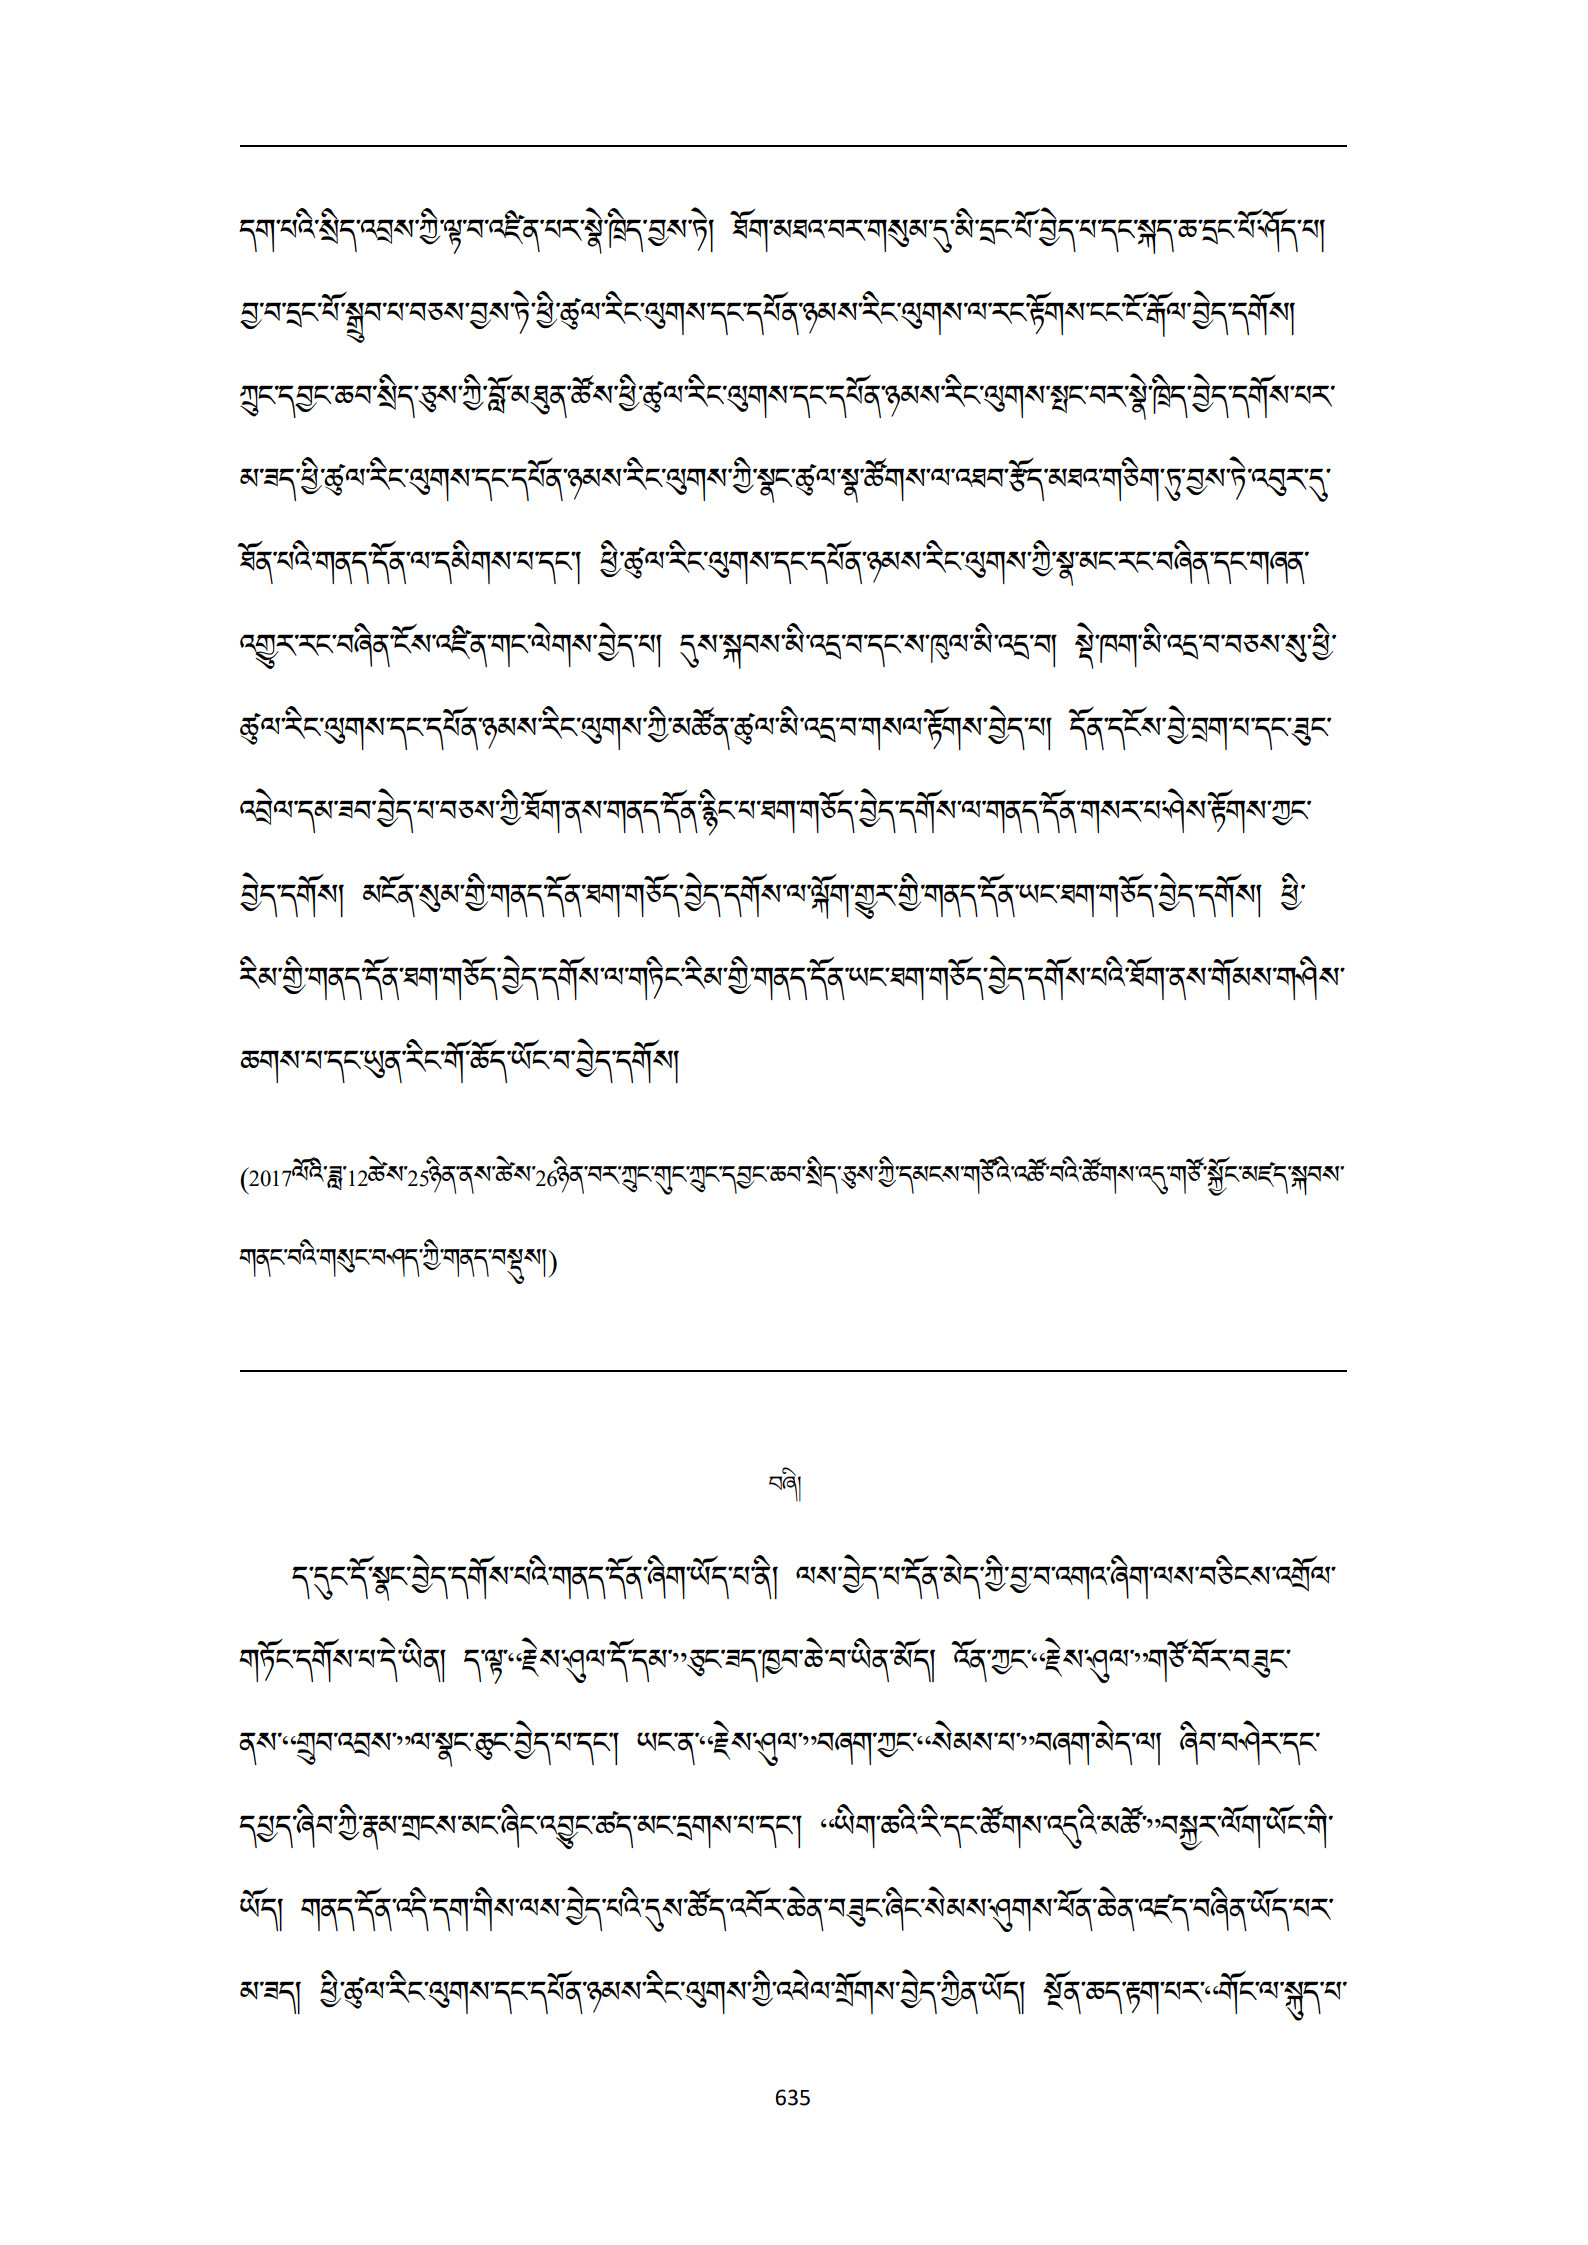 དག་པའི་སྲིད་འབྲས་ཀྱི་ལྟ་བ་འཛིན་པར་སྣེ་ཁྲིད་བྱས་ཏེ། ཐོག་མཐའ་བར་གསུམ་དུ་མི་དྲང་པོ་བྱེད་པ་དང་སྐད་ཆ་དྲང་པོ་ཤོད་པ།
བྱ་བ་དྲང་པོ་སྒྲུབ་པ་བཅས་བྱས་ཏེ་ཕྱི་ཚུལ་རིང་ལུགས་དང་དཔོན་ཉམས་རིང་ལུགས་ལ་རང་རྟོགས་ངང་ངོ་རྒོལ་བྱེད་དགོས།
ཀྲུང་དབྱང་ཆབ་སྲིད་ཅུས་ཀྱི་བློ་མཐུན་ཚོས་ཕྱི་ཚུལ་རིང་ལུགས་དང་དཔོན་ཉམས་རིང་ལུགས་སྤང་བར་སྣེ་ཁྲིད་བྱེད་དགོས་པར་
མ་ཟད་ཕྱི་ཚུལ་རིང་ལུགས་དང་དཔོན་ཉམས་རིང་ལུགས་ཀྱི་སྣང་ཚུལ་སྣ་ཚོགས་ལ་འཐབ་རྩོད་མཐའ་གཅིག་ཏུ་བྱས་ཏེ་འབུར་དུ་
ཐོན་པའི་གནད་དོན་ལ་དམིགས་པ་དང་། ཕྱི་ཚུལ་རིང་ལུགས་དང་དཔོན་ཉམས་རིང་ལུགས་ཀྱི་སྣ་མང་རང་བཞིན་དང་གཞན་
འགྱུར་རང་བཞིན་ངོས་འཛིན་གང་ལེགས་བྱེད་པ། དུས་སྐབས་མི་འདྲ་བ་དང་ས་ཁུལ་མི་འདྲ་བ། སྡེ་ཁག་མི་འདྲ་བ་བཅས་སུ་ཕྱི་
ཚུལ་རིང་ལུགས་དང་དཔོན་ཉམས་རིང་ལུགས་ཀྱི་མཚོན་ཚུལ་མི་འདྲ་བ་གསལ་རྟོགས་བྱེད་པ། དོན་དངོས་བྱེ་བྲག་པ་དང་ཟུང་
འབྲེལ་དམ་ཟབ་བྱེད་པ་བཅས་ཀྱི་ཐོག་ནས་གནད་དོན་རྙིང་པ་ཐག་གཅོད་བྱེད་དགོས་ལ་གནད་དོན་གསར་པ་ཤེས་རྟོགས་ཀྱང་
བྱེད་དགོས། མངོན་སུམ་གྱི་གནད་དོན་ཐག་གཅོད་བྱེད་དགོས་ལ་ལྐོག་གྱུར་གྱི་གནད་དོན་ཡང་ཐག་གཅོད་བྱེད་དགོས། ཕྱི་
རིམ་གྱི་གནད་དོན་ཐག་གཅོད་བྱེད་དགོས་ལ་གཏིང་རིམ་གྱི་གནད་དོན་ཡང་ཐག་གཅོད་བྱེད་དགོས་པའི་ཐོག་ནས་གོམས་གཤིས་
ཆགས་པ་དང་ཡུན་རིང་གོ་ཆོད་ཡོང་བ་བྱེད་དགོས།
(2017ལོའི་ཟླ་12ཚེས་25ཉིན་ནས་ཚེས་26ཉིན་བར་ཀྲུང་གུང་ཀྲུང་དབྱང་ཆབ་སྲིད་ཅུས་ཀྱི་དམངས་གཙོའི་འཚོ་བའི་ཚོགས་འདུ་གཙོ་སྐྱོང་མཛད་སྐབས་
གནང་བའི་གསུང་བཤད་ཀྱི་གནད་བསྡུས།)
བཞི།
ད་དུང་དོ་སྣང་བྱེད་དགོས་པའི་གནད་དོན་ཞིག་ཡོད་པ་ནི། ལས་བྱེད་པ་དོན་མེད་ཀྱི་བྱ་བ་འགའ་ཞིག་ལས་བཅིངས་འགྲོལ་
གཏོང་དགོས་པ་དེ་ཡིན། ད་ལྟ་“རྗེས་ཤུལ་དོ་དམ་”ཅུང་ཟད་ཁྱབ་ཆེ་བ་ཡིན་མོད། འོན་ཀྱང་“རྗེས་ཤུལ་”གཙོ་བོར་བཟུང་
ནས་“གྲུབ་འབྲས་”ལ་སྣང་ཆུང་བྱེད་པ་དང་། ཡང་ན་“རྗེས་ཤུལ་”བཞག་ཀྱང་“སེམས་པ་”བཞག་མེད་ལ། ཞིབ་བཤེར་དང་
དཔྱད་ཞིབ་ཀྱི་རྣམ་གྲངས་མང་ཞིང་འབྱུང་ཚད་མང་དྲགས་པ་དང་། “ཡིག་ཆའི་རི་དང་ཚོགས་འདུའི་མཚོ་”བསྐྱར་ལོག་ཡོང་གི་
ཡོད། གནད་དོན་འདི་དག་གིས་ལས་བྱེད་པའི་དུས་ཚོད་འབོར་ཆེན་བཟུང་ཞིང་སེམས་ཤུགས་ཕོན་ཆེན་འཛད་བཞིན་ཡོད་པར་
མ་ཟད། ཕྱི་ཚུལ་རིང་ལུགས་དང་དཔོན་ཉམས་རིང་ལུགས་ཀྱི་འཕེལ་གྲོགས་བྱེད་ཀྱིན་ཡོད། སྔོན་ཆད་རྟག་པར་“གོང་ལ་སྐུད་པ་
635